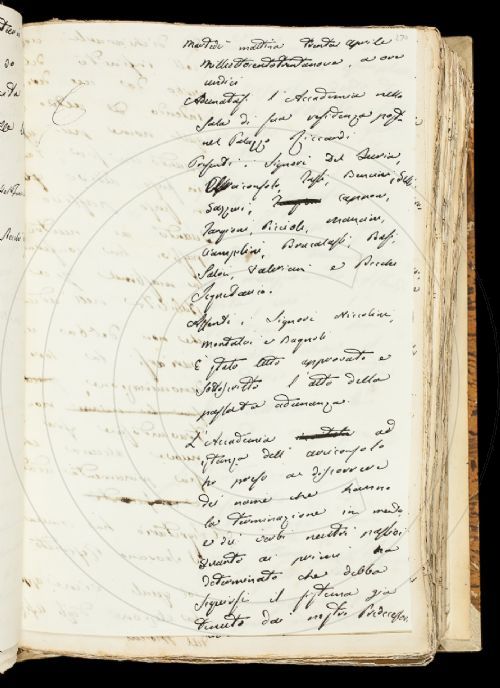 Martedì mattina trenta aprile
Milleottocentotrentanove, a ore
undici
Adunatasi l'Accademia nella
Sala di sua residenza posta
nel Palazzo Riccardi
Presenti i Signori Del Furia,
Arciconsolo, Bencini,
Gazzeri, Capponi,
Targioni, Piccioli, Mancini,
Ciampolini, Brucalassi, Basi,
Valeriani e Becchi
Segretario.
Assenti i Signori Niccolini,
Montalvi e Bagnoli
È stato letto approvato e
sottoscritto l'atto della
passata adunanza.
L'Accademia ad
istanza dell'arciconsolo
ha preso a discorrere
dei nomi che hanno
la terminazione in
e dei verbi neutri passivi
Quanto ai primi ha
determinato che debba
seguirsi il sistema già
tenuto dai nostri Predecessori